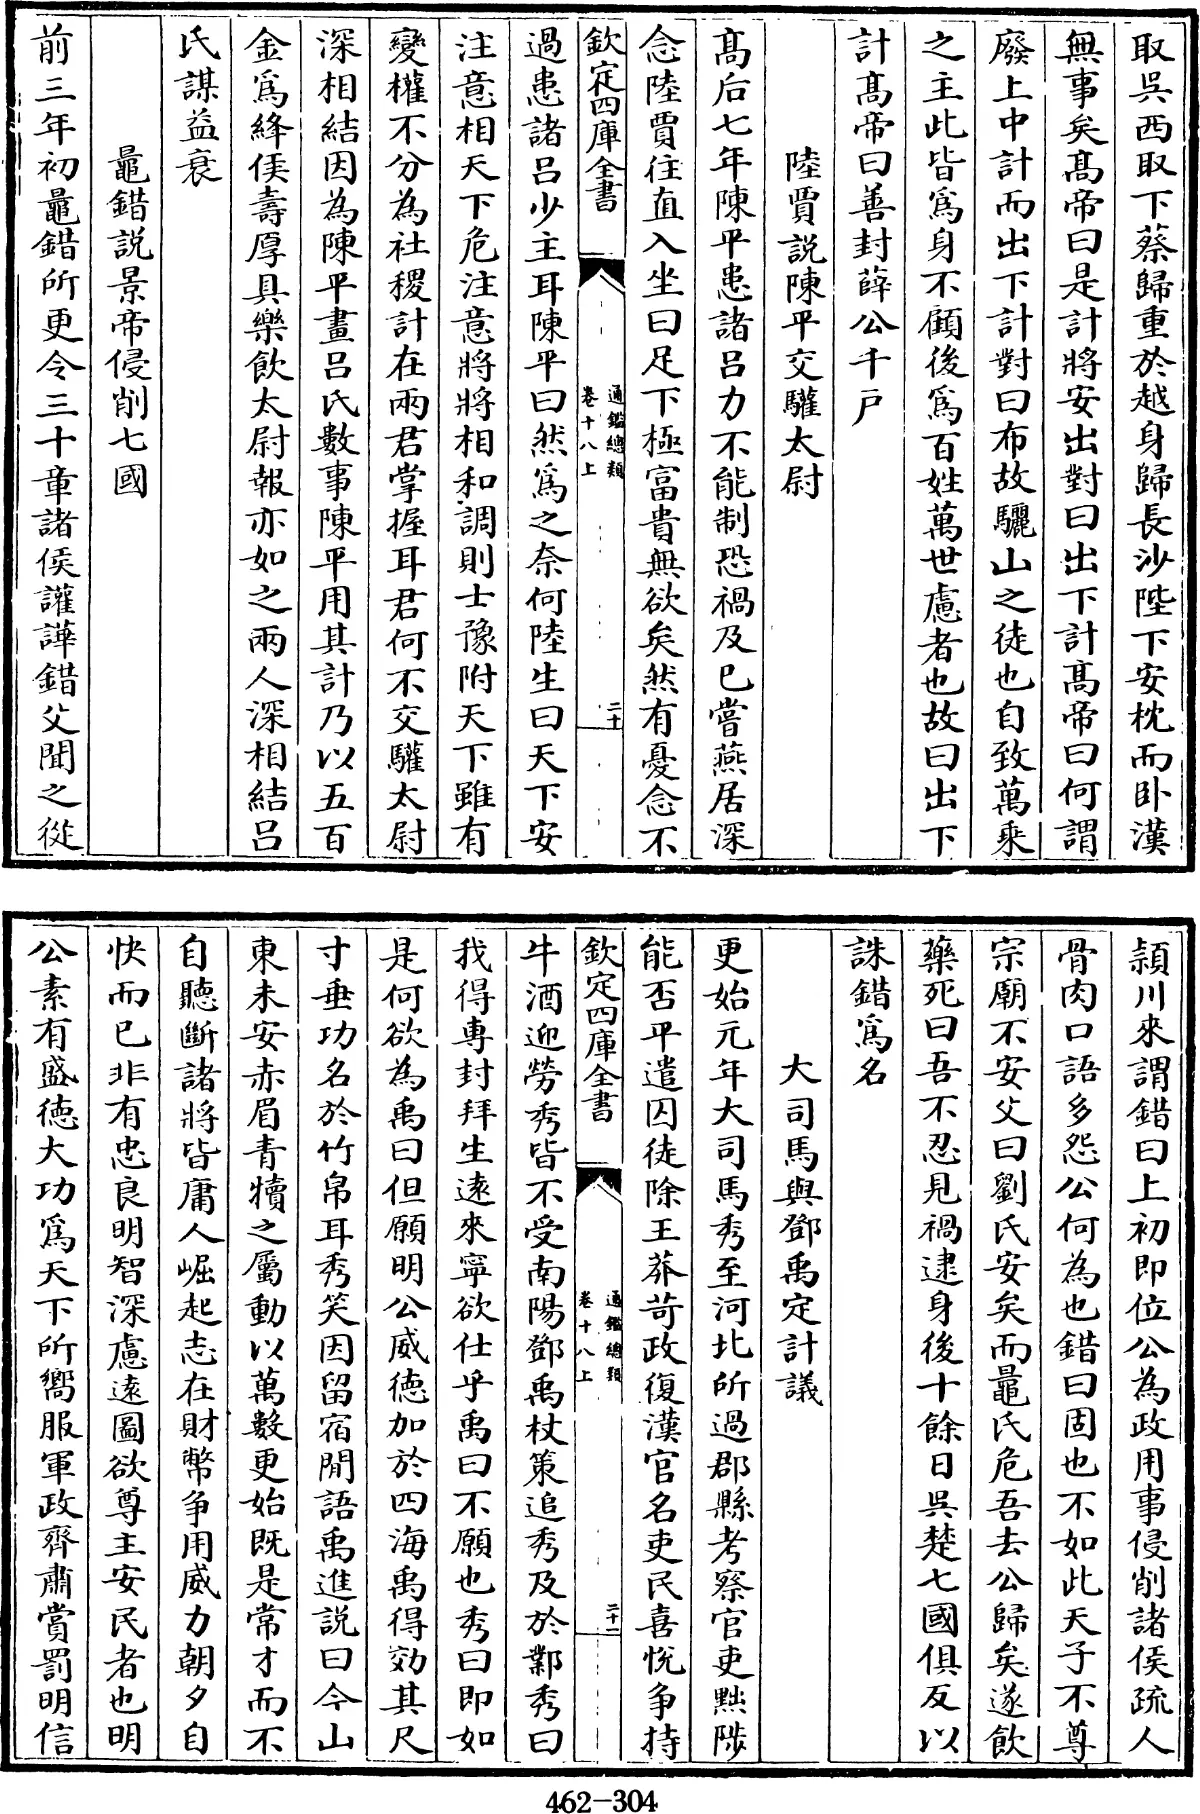 取吳西取下蔡歸重於越身歸長沙陛下安枕而卧漢
無事矣髙帝曰是計將安出對曰出下計髙帝曰何謂
廢上中計而出下計對曰布故驪山之徒也自致萬乘
之主此皆爲身不顧後爲百姓萬世慮者也故曰出下
計髙帝曰善封薛公千户
陸賈説陳平交驩太尉
髙后七年陳平患諸吕力不能制恐禍及已嘗燕居深
念陸賈往直入坐曰足下極富貴無欲矣然有憂念不
欽定四庫全書
通鑑總類
卷十八上
二十
過患諸吕少主耳陳平曰然爲之奈何陸生曰天下安
注意相天下危注意將將相和調則士豫附天下雖有
變權不分為社稷計在兩君掌握耳君何不交驩太尉
深相結因為陳平畫吕氏數事陳平用其計乃以五百
金爲絳侯壽厚具樂飲太尉報亦如之兩人深相結吕
氏謀益衰
鼂錯説景帝侵削七國
前三年初鼂錯所更令三十章諸侯讙譁錯父聞之從
頴川來謂錯曰上初即位公為政用事侵削諸侯疏人
骨肉口語多怨公何為也錯曰固也不如此天子不尊
宗廟不安父曰劉氏安矣而鼂氏危吾去公歸矣遂飲
藥死曰吾不忍見禍逮身後十餘日吳楚七國俱反以
誅錯爲名
大司馬與鄧禹定計議
更始元年大司馬秀至河北所過郡縣考察官吏黜陟
能否平遣囚徒除王莽苛政復漢官名吏民喜悦争持
欽定四庫全書
通鑑總類
卷十八上
二十一
牛酒迎勞秀皆不受南陽鄧禹杖策追秀及於鄴秀曰
我得專封拜生逺來寧欲仕乎禹曰不願也秀曰即如
是何欲為禹曰但願明公威徳加於四海禹得効其尺
寸垂功名於竹帛耳秀笑因留宿閒語禹進説曰今山
東未安赤眉青犢之屬動以萬數更始既是常才而不
自聽斷諸將皆庸人崛起志在財幣争用威力朝夕自
快而已非有忠良明智深慮逺圖欲尊主安民者也明
公素有盛徳大功爲天下所嚮服軍政齊肅賞罰明信
462-304